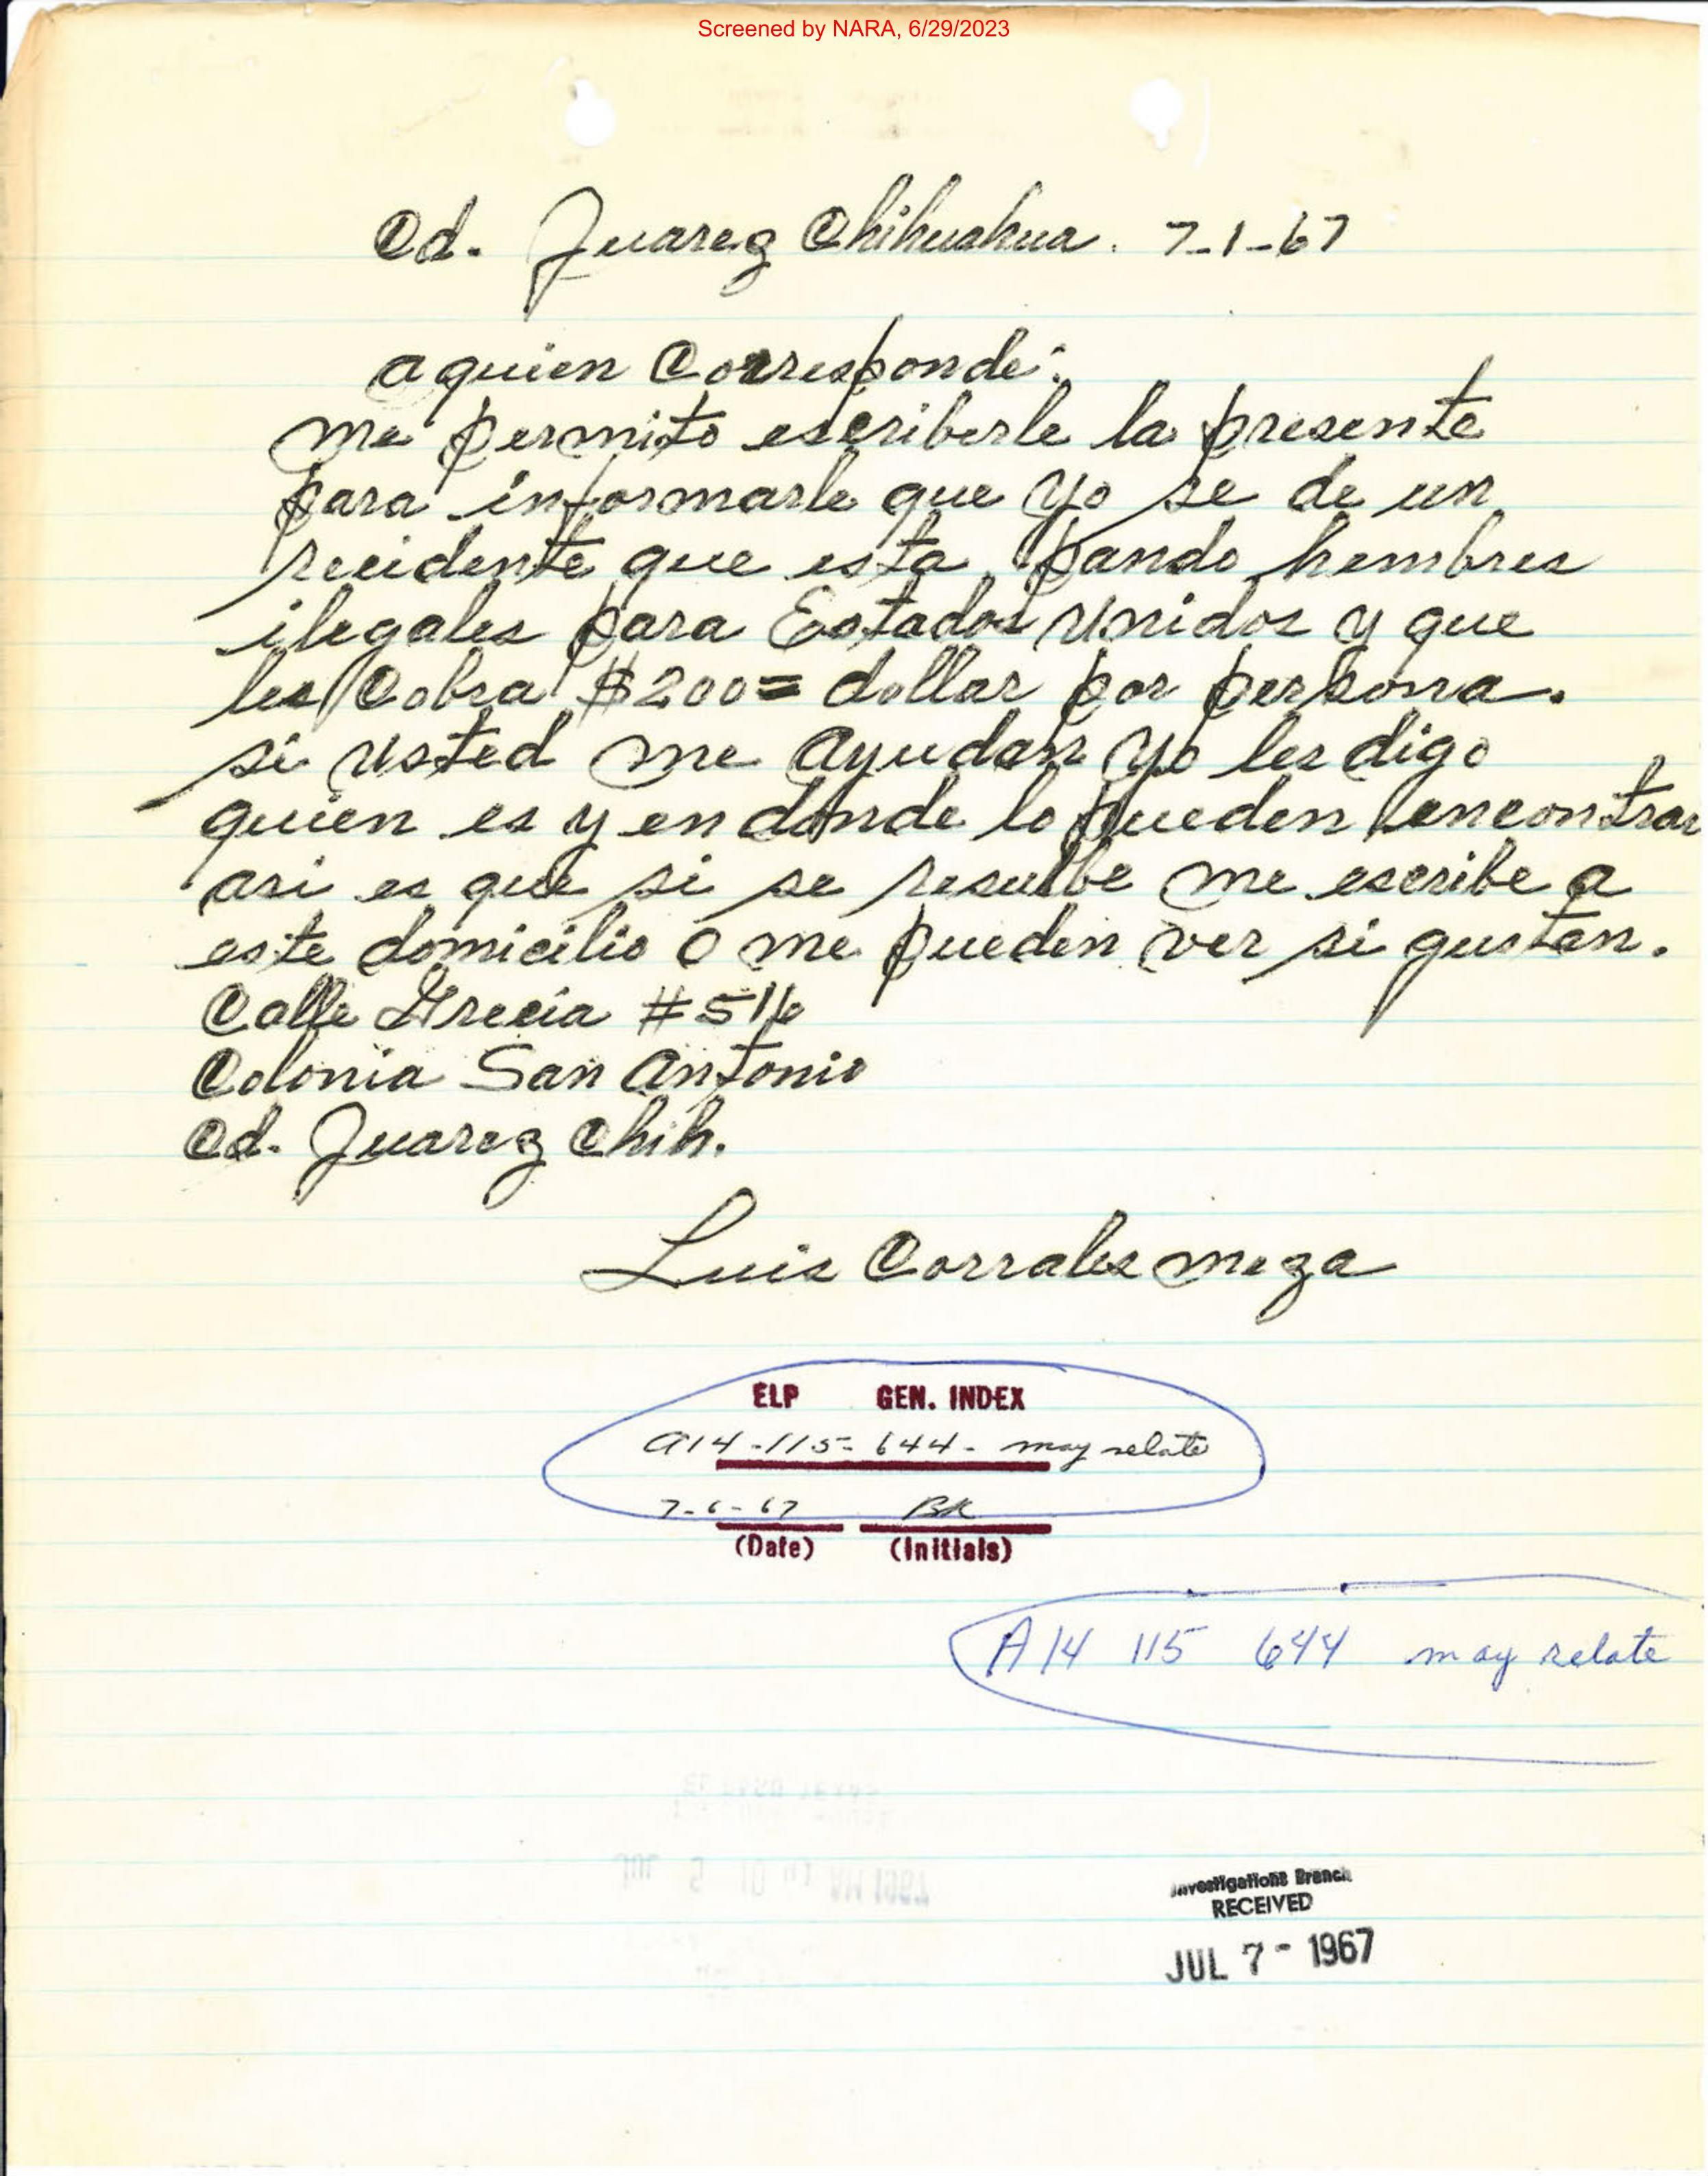 Screened by NARA, 6/29/2023
Cd. Juarez Chihuahua. 7-1-67
a quien Corresponde:
me permito escriberle la presente
para informarle que yo se de un
recidente que esta pando hembres
ilegales para Estados Unidos y que
les Cobra $200= dollar por persona.
si usted me ayudan yo les digo
quien es y en donde lo pueden encontrar
asi es que si se resuelbe me escribe a
este domicilio o me pueden ver si gustan.
Calle Grecia #516
Colonia San Antonio
Cd. Juarez Chih.
Luis Corrales meza
ELP GEN. INDEX
A14-115-644- may relate
7-6-67 BK
(Date) (Initials)
A14 115 644 may relate
Investigations Branch
RECEIVED
JUL 7 - 1967